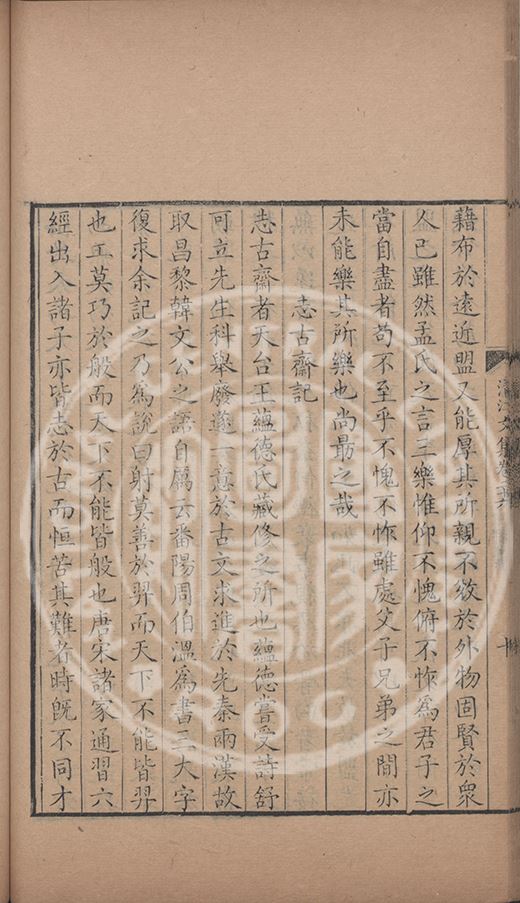 藉布於遠近盟又能厚其所親不效於外物固賢於衆
人已雖然孟氏之言三樂惟仰不愧俯不怍爲君子之
當自盡者苟不至乎不愧不怍雖處父子兄弟之間亦
未能樂其所樂也尚最之哉
志古齋記
志古齋者天台王蘊德氏藏修之所也蘊德嘗受詩舒
可立先生科舉廢遂一意於古文求進於先秦兩漢故
取昌黎韓文公之語自厲云番陽周伯溫爲書三大字
復求余記之乃爲說曰射莫善於羿而天下不能皆羿
也工莫巧於般而天下不能皆般也唐宋諸家通習六
經出入諸子亦皆志於古而恒苦其難者時旣不同才